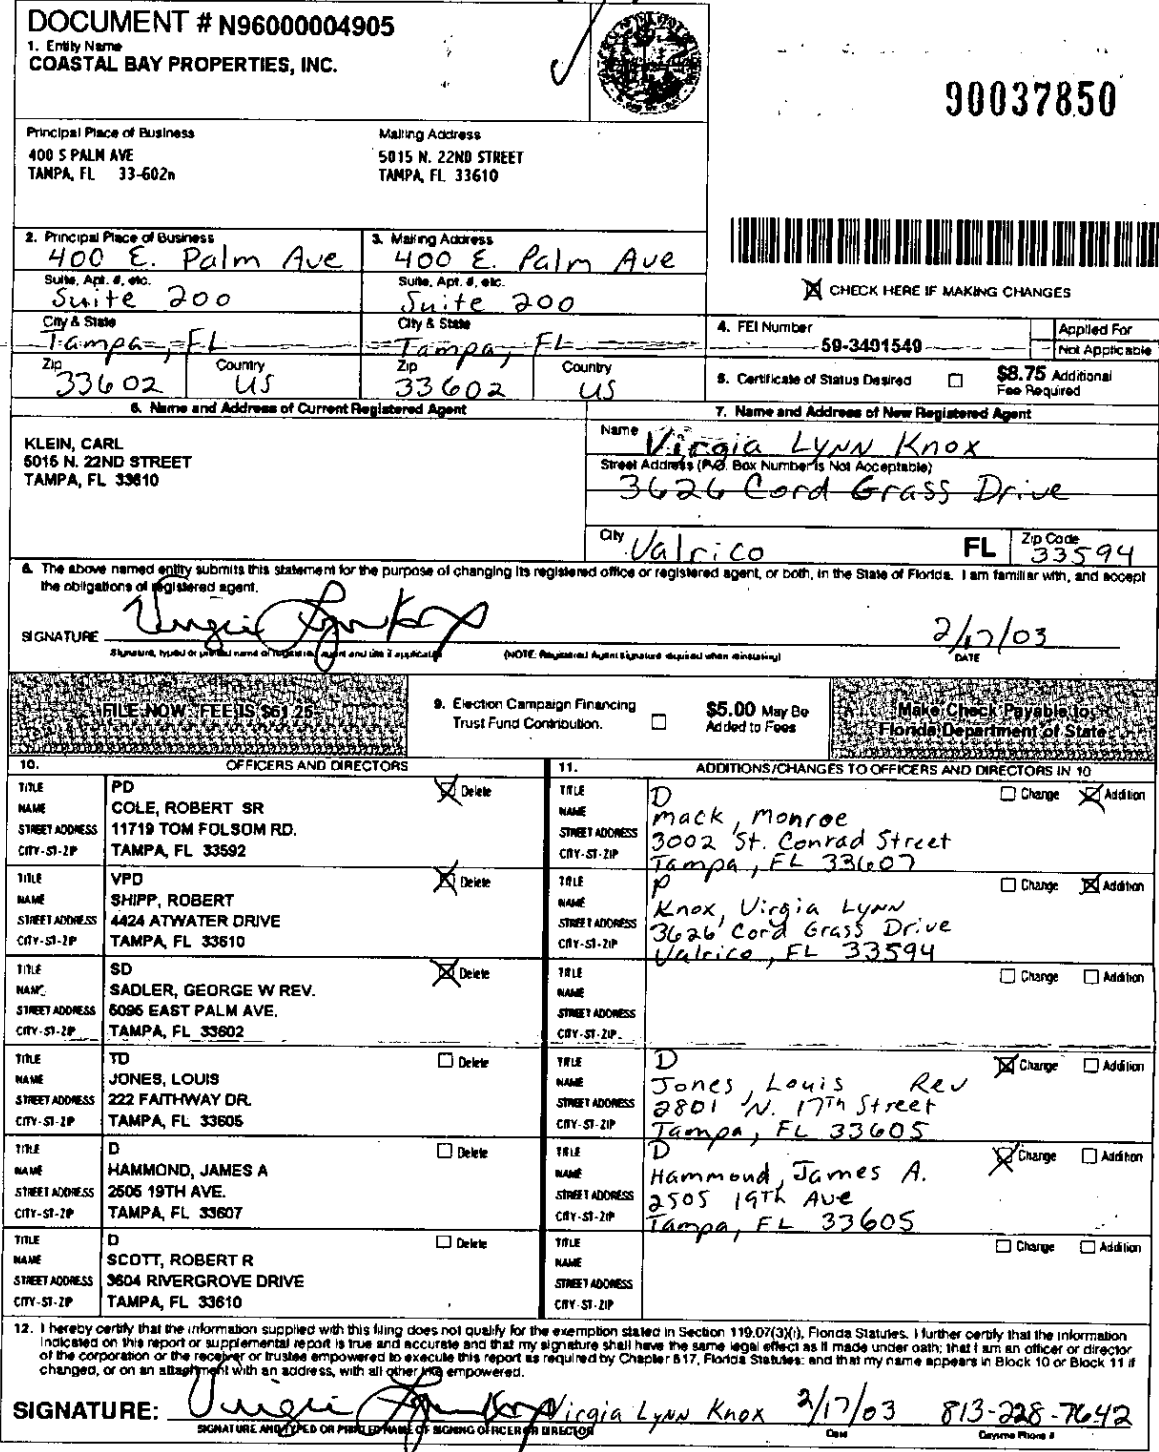 DOCUMENT # N96000004905
1. Entity Name
COASTAL BAY PROPERTIES, INC.
90037850
Principal Place of Business
400 S PALM AVE
TAMPA, FL 33-602n
Mailing Address
5015 N. 22ND STREET
TAMPA, FL 33610
2. Principal Place of Business
400 E. Palm Ave
Suite, Apt. #, etc.
Suite 200
City & State
Tampa, FL
Zip
33602
Country
US
3. Mailing Address
400 E. Palm Ave
Suite, Apt. #, etc.
Suite 200
City & State
Tampa, FL
Zip
33602
Country
US
CHECK HERE IF MAKING CHANGES
4. FEI Number
59-3401549
Applied For
Not Applicable
5. Certificate of Status Desired
$8.75 Additional
Fee Required
6. Name and Address of Current Registered Agent
KLEIN, CARL
5015 N. 22ND STREET
TAMPA, FL 33610
7. Name and Address of New Registered Agent
Name
Virgia Lynn Knox
Street Address (P.O. Box Number is Not Acceptable)
3626 Cord Grass Drive
City
Valrico
FL
Zip Code
33594
8. The above named entity submits this statement for the purpose of changing its registered office or registered agent, or both, in the State of Florida. I am familiar with, and accept
the obligations of registered agent.
SIGNATURE
2/17/03
Signature, typed or printed name of registered agent and title if applicable
(NOTE: Registered Agent signature required when reinstating)
DATE
FILE NOW FEE IS $61.25
9. Election Campaign Financing
Trust Fund Contribution.
$5.00 May Be
Added to Fees
Make Check Payable to:
Florida Department of State
10. OFFICERS AND DIRECTORS
TITLE PD Delete
NAME COLE, ROBERT SR
STREET ADDRESS 11719 TOM FOLSOM RD.
CITY-ST-ZIP TAMPA, FL 33592
TITLE VPD Delete
NAME SHIPP, ROBERT
STREET ADDRESS 4424 ATWATER DRIVE
CITY-ST-ZIP TAMPA, FL 33610
TITLE SD Delete
NAME SADLER, GEORGE W REV.
STREET ADDRESS 5095 EAST PALM AVE.
CITY-ST-ZIP TAMPA, FL 33602
TITLE TD Delete
NAME JONES, LOUIS
STREET ADDRESS 222 FAITHWAY DR.
CITY-ST-ZIP TAMPA, FL 33605
TITLE D Delete
NAME HAMMOND, JAMES A
STREET ADDRESS 2505 19TH AVE.
CITY-ST-ZIP TAMPA, FL 33607
TITLE D Delete
NAME SCOTT, ROBERT R
STREET ADDRESS 3604 RIVERGROVE DRIVE
CITY-ST-ZIP TAMPA, FL 33610
11. ADDITIONS/CHANGES TO OFFICERS AND DIRECTORS IN 10
TITLE D Change Addition
NAME Mack, Monroe
STREET ADDRESS 3002 St. Conrad Street
CITY-ST-ZIP Tampa, FL 33607
TITLE P Change Addition
NAME Knox, Virgia Lynn
STREET ADDRESS 3626 Cord Grass Drive
CITY-ST-ZIP Valrico, FL 33594
TITLE Change Addition
NAME
STREET ADDRESS
CITY-ST-ZIP
TITLE D Change Addition
NAME Jones, Louis Rev
STREET ADDRESS 2801 N. 17Th Street
CITY-ST-ZIP Tampa, FL 33605
TITLE D Change Addition
NAME Hammond, James A.
STREET ADDRESS 2505 19Th Ave
CITY-ST-ZIP Tampa, FL 33605
TITLE Change Addition
NAME
STREET ADDRESS
CITY-ST-ZIP
12. I hereby certify that the information supplied with this filing does not qualify for the exemption stated in Section 119.07(3)(i), Florida Statutes. I further certify that the information
indicated on this report or supplemental report is true and accurate and that my signature shall have the same legal effect as if made under oath; that I am an officer or director
of the corporation or the receiver or trustee empowered to execute this report as required by Chapter 617, Florida Statutes; and that my name appears in Block 10 or Block 11 if
changed, or on an attachment with an address, with all other like empowered.
SIGNATURE: Virgia Lynn Knox 2/17/03 813-228-7642
SIGNATURE AND TYPED OR PRINTED NAME OF SIGNING OFFICER OR DIRECTOR
Date
Daytime Phone #